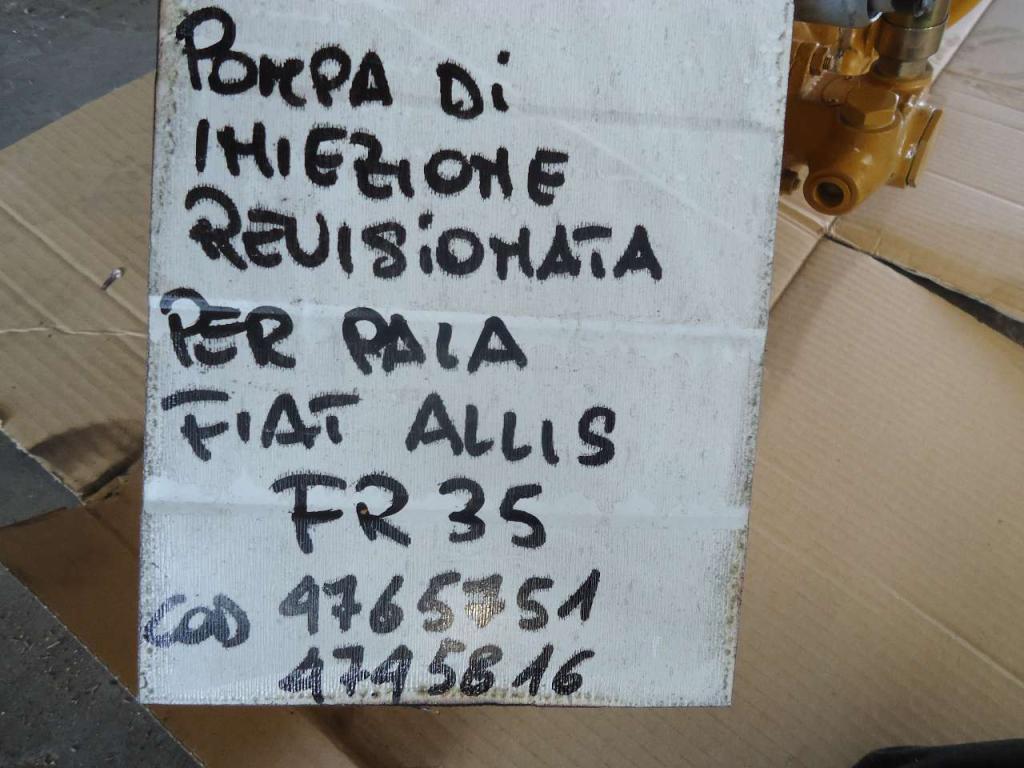 POMPA Di
INIEZIONE
REVISiONATA
PER PALA
FIAT ALLIS
FR 35
COD 4765751
4795816